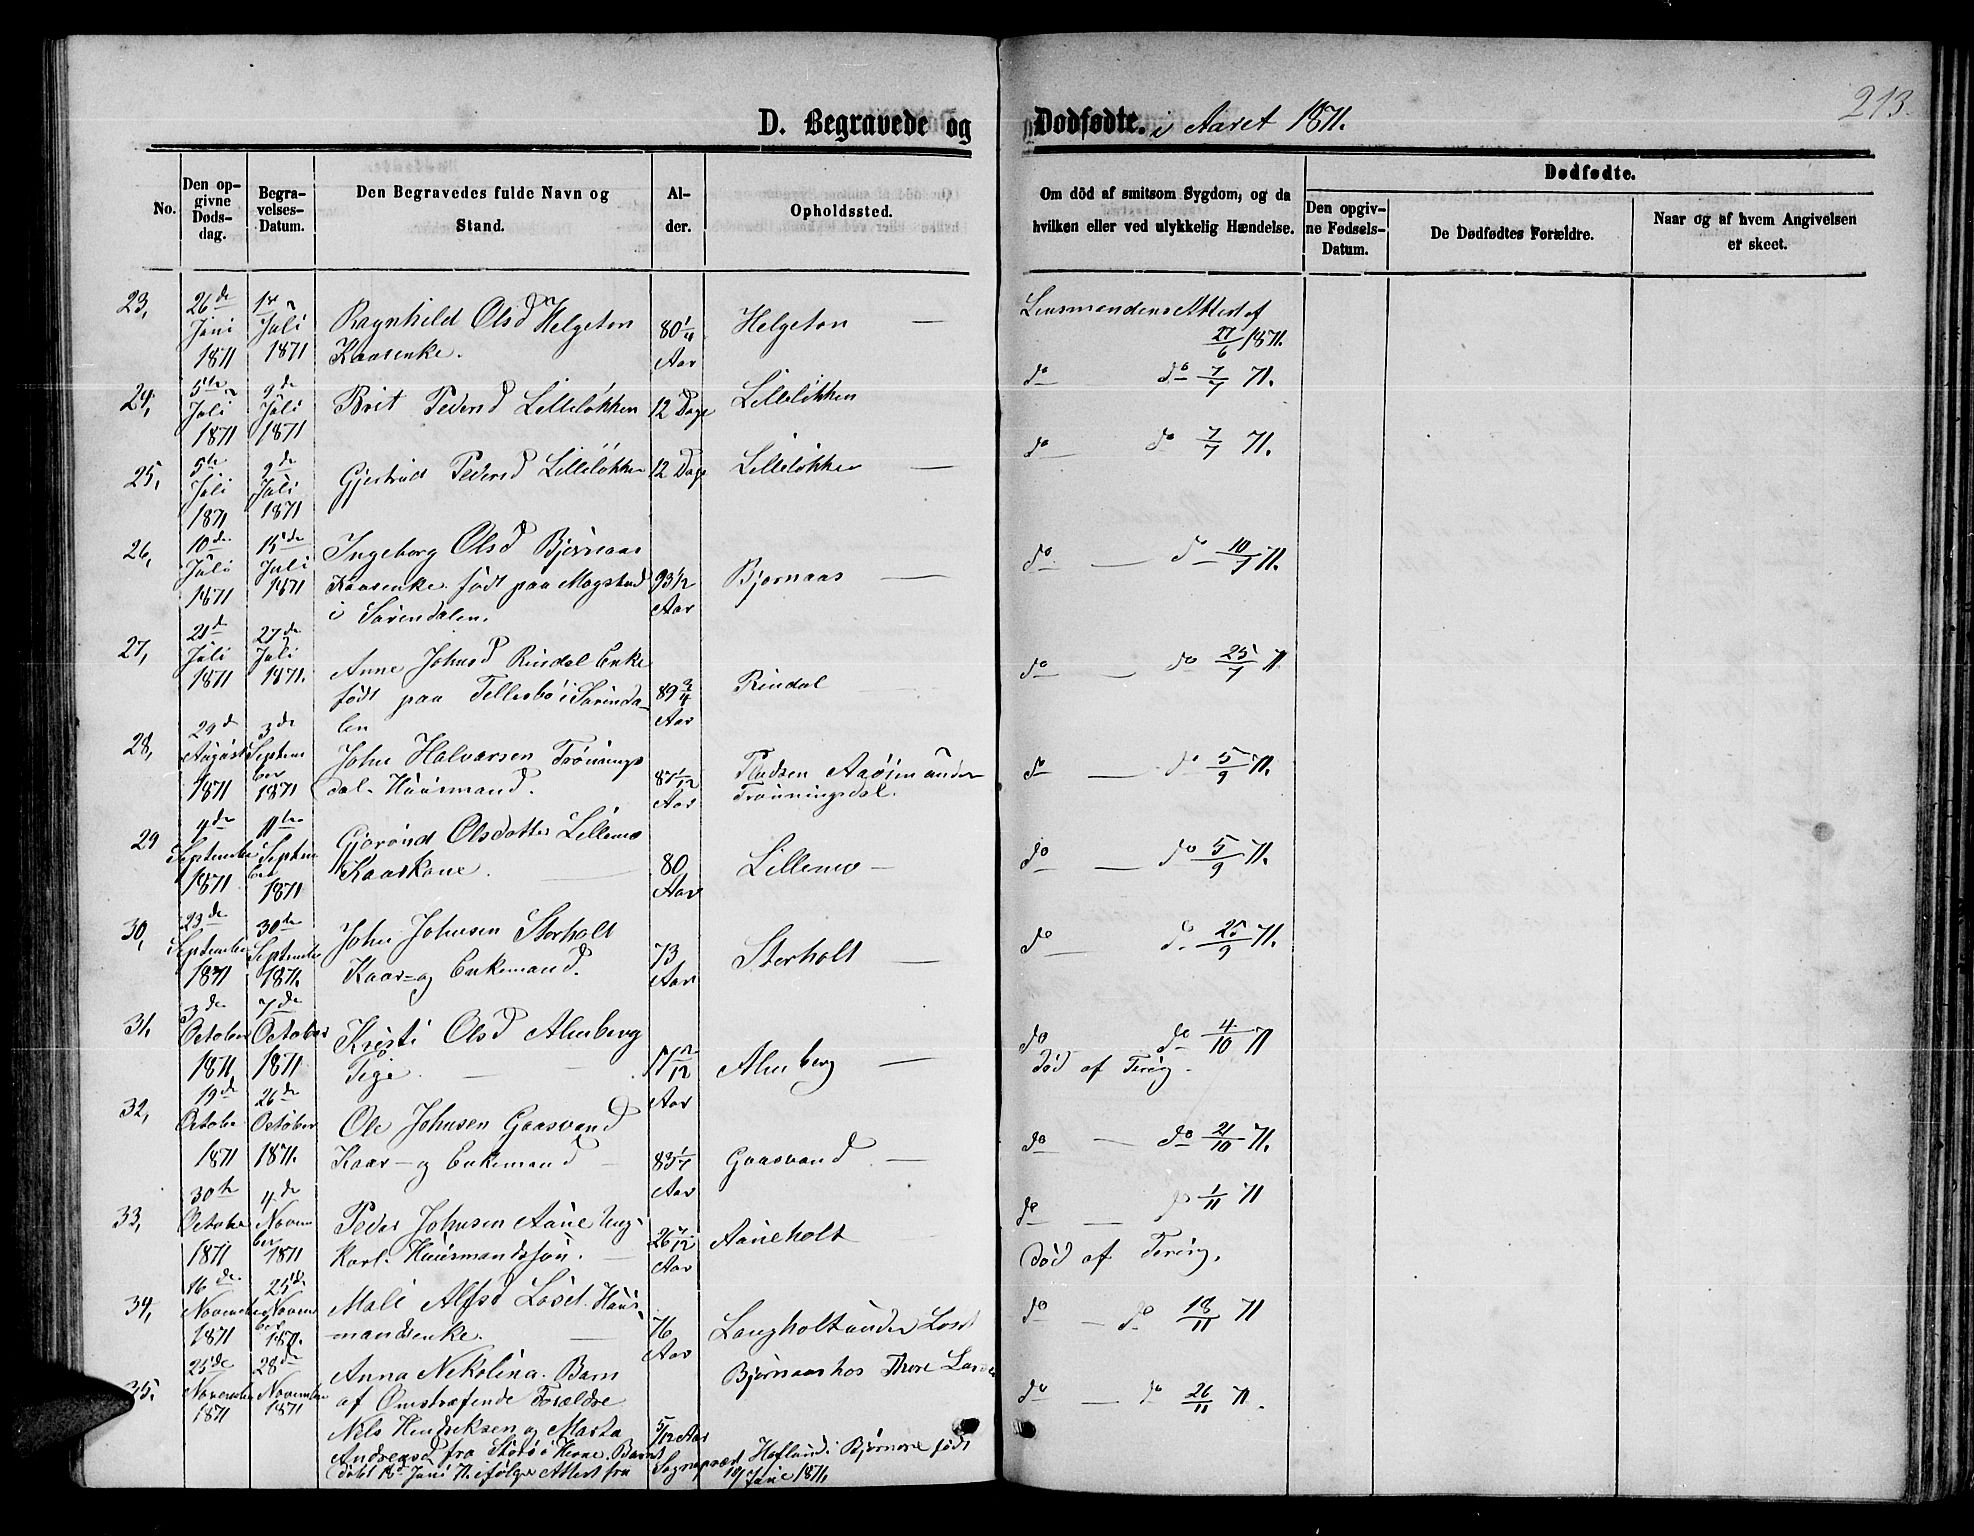 213.
D. Begravede og Dødfødte. i Aaret 1871.
No.
Den opgivne Døds-dag.
Begravelses-Datum.
Den Begravedes fulde Navn og Stand.
Alder.
Opholdssted.
Om död af smitsom Sygdom, og da hvilken eller ved ulykkelig Hændelse.
Dødfødte.
Den opgivne Fødsels-Datum.
De Dødfødtes Forældre.
Naar og af hvem Angivelsen er skeet.
23, 26de Juni 1871 Juli 1871 Ragnhild Olsd Helgeton Kaarenke. 80 1/4 Aar Helgeton — Lensmandens Attest af 27/6 1871.
24, 5te Juli 1871 9de Juli 1871 Brit Pedersd Lilleløkken 12 Dage Lilleløkken do do 7/7 71.
25, 5te Juli 1871 9de Juli 1871 Gjertrud Pedersd Lilleløkken 12 Dage Lilleløkken — do do 7/7 71.
26, 10de Juli 1871 15de Juli 1871 Ingeborg Olsd Bjørnaas
Kaarenke født paa Mogstad
i Surendalen. 93 1/2 Aar Bjørnaas — do — do 10/7 71.
27, 21de Juli 1871 27de Juli 1871. Anne Johnsd Rindal Enke
født paa Tellesbø i Surenda-
len 89 3/4 Aar Rindal — do — do 25/7 71
28, 29de August 1871 3de September 1871 John Halvorsen Trønings
dal. Huusmand. 87 1/12 Aar Pladsen under
Trønningsdal. do — do 5/9 71.
29 4de September 1871 11te September 1871 Olsdatter Lillemo
Kaarkone. 80 Aar Lillemo — do — do 5/9 71.
30, 23de September 1871 30te September 1871. John Johnsen Storholt
Kaar- og Enkemand. 73 Aar Storholt — do do 25/9 71.
31, 3de October 1871, 7de October 1871 Kristi Olsd Almberg
Pige. Aar Almberg — do do 4/10 71
død af Tæring.
32, 19de October 1871 26de October 1871. Ole Johnsen Gaasvand
Kaar- og Enkemand Aar Gaasvand. — do — do 21/10 71.
33, 30te October 1871 4de November 1871 Peder Johnsen Aune Ung-
karl. Huusmandssøn. 26 7/12 Aar Auneholt — do — do 1/11 71
død af Tæring.
34, 16de November 1871 25de November 1871. Mali Alfsd Løset. Huus-
mandsenke. 76 Aar Langholt under Løset do — do 18/11 71
35. 25de November 1871 28de November 1871 Anna Nekolina. Barn
af Omstreifende Forældre
Nels Hendriksen og Marta
Andreasd fra i Barnet
døbt Juni 71 ifølge Attest fra 5/12 Aar Bjørnaas hos Thore do — do 26/11 71.
Sognepræst Hofland i født
Juni 1871,